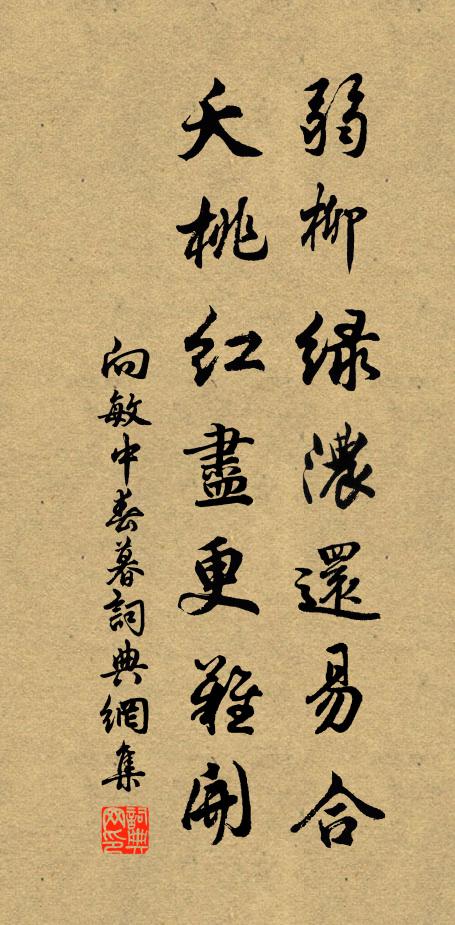 弱柳綠濃還易合
夭桃紅盡更難開
向敏中春暮詞典網集
詞典网印